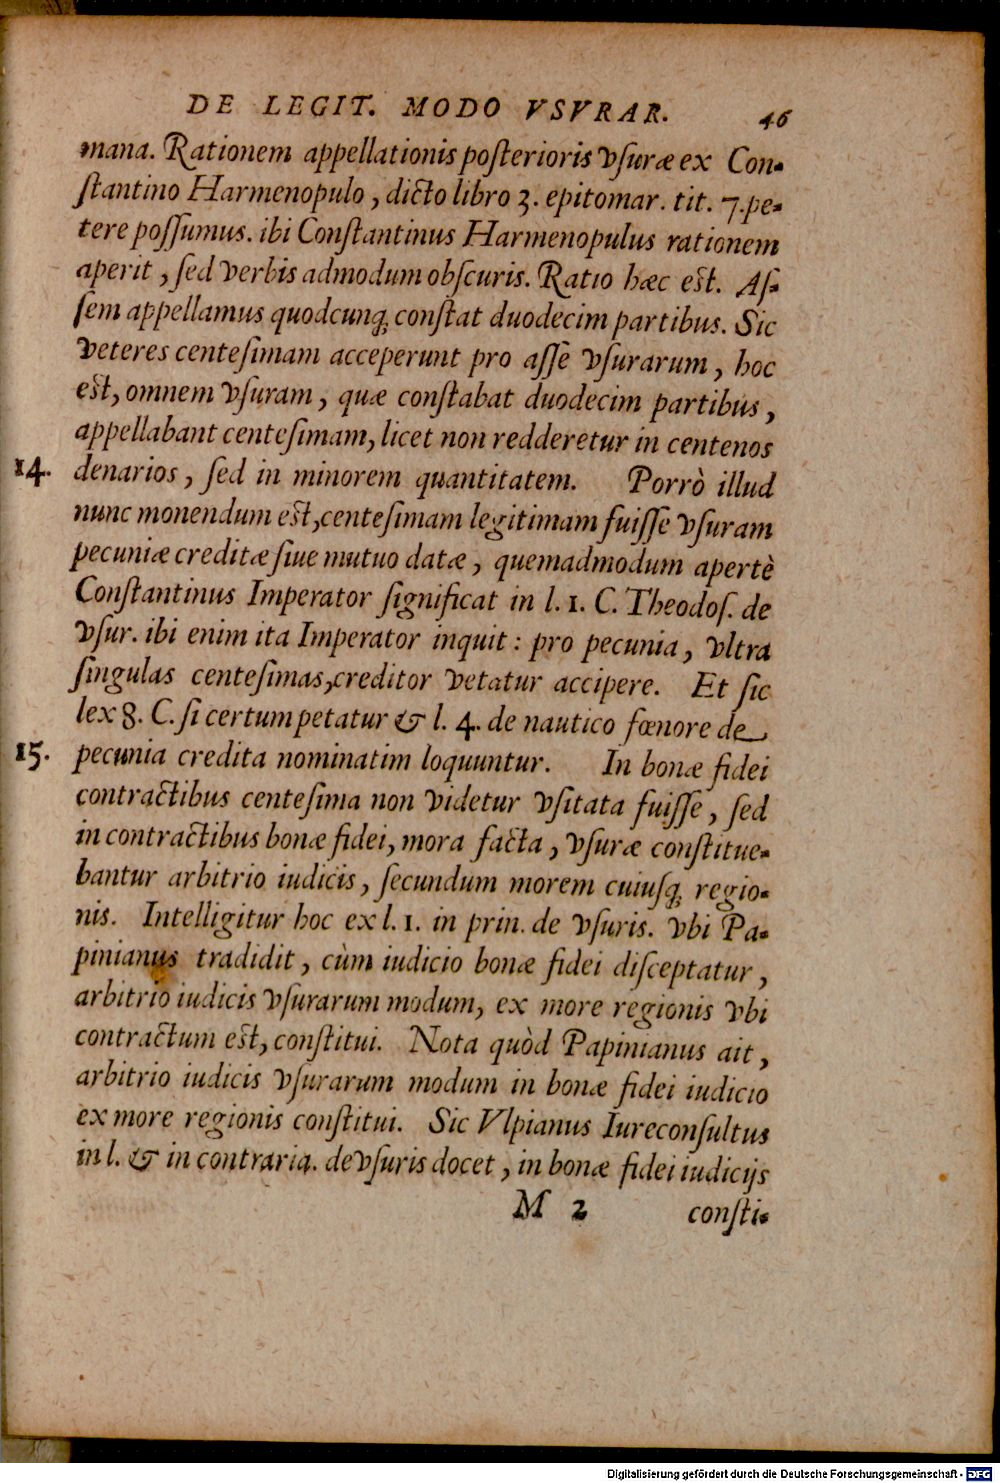 DE LEGIT. MODO VSVRAR. 46
mana. Rationem appellationis posterioris vsuræ ex Con-
stantino Harmenopulo, dicto libro 3. epitomar. tit. 7. pe-
tere possumus. ibi Constantinus Harmenopulus rationem
aperit, sed verbis admodum obscuris. Ratio hæc est. As-
sem appellamus quodcunq; constat duodecim partibus. Sic
veteres centesimam acceperunt pro asse vsurarum, hoc
est, omnem vsuram, quæ constabat duodecim partibus,
appellabant centesimam, licet non redderetur in centenos
14. denarios, sed in minorem quantitatem. Porrò illud
nunc monendum est, centesimam legitimam fuisse vsuram
pecuniæ creditæ siue mutuo datæ, quemadmodum apertè
Constantinus Imperator significat in l. 1. C. Theodos. de
vsur. ibi enim ita Imperator inquit: pro pecunia, vltra
singulas centesimas, creditor vetatur accipere. Et sic
lex 8. C. si certum petatur & l. 4. de nautico fœnore de
15. pecunia credita nominatim loquuntur. In bonæ fidei
contractibus centesima non videtur vsitata fuisse, sed
in contractibus bonæ fidei, mora facta, vsuræ constitue-
bantur arbitrio iudicis, secundum morem cuiusq; regio-
nis. Intelligitur hoc ex l. 1. in prin. de vsuris. vbi Pa-
pinianus tradidit, cùm iudicio bonæ fidei disceptatur,
arbitrio iudicis vsurarum modum, ex more regionis vbi
contractum est, constitui. Nota quòd Papinianus ait,
arbitrio iudicis vsurarum modum in bonæ fidei iudicio
ex more regionis constitui. Sic Vlpianus Iureconsultus
in l. & in contraria. de vsuris docet, in bonæ fidei iudicijs
M 2 consti-
Digitalisierung gefördert durch die Deutsche Forschungsgemeinschaft - DFG